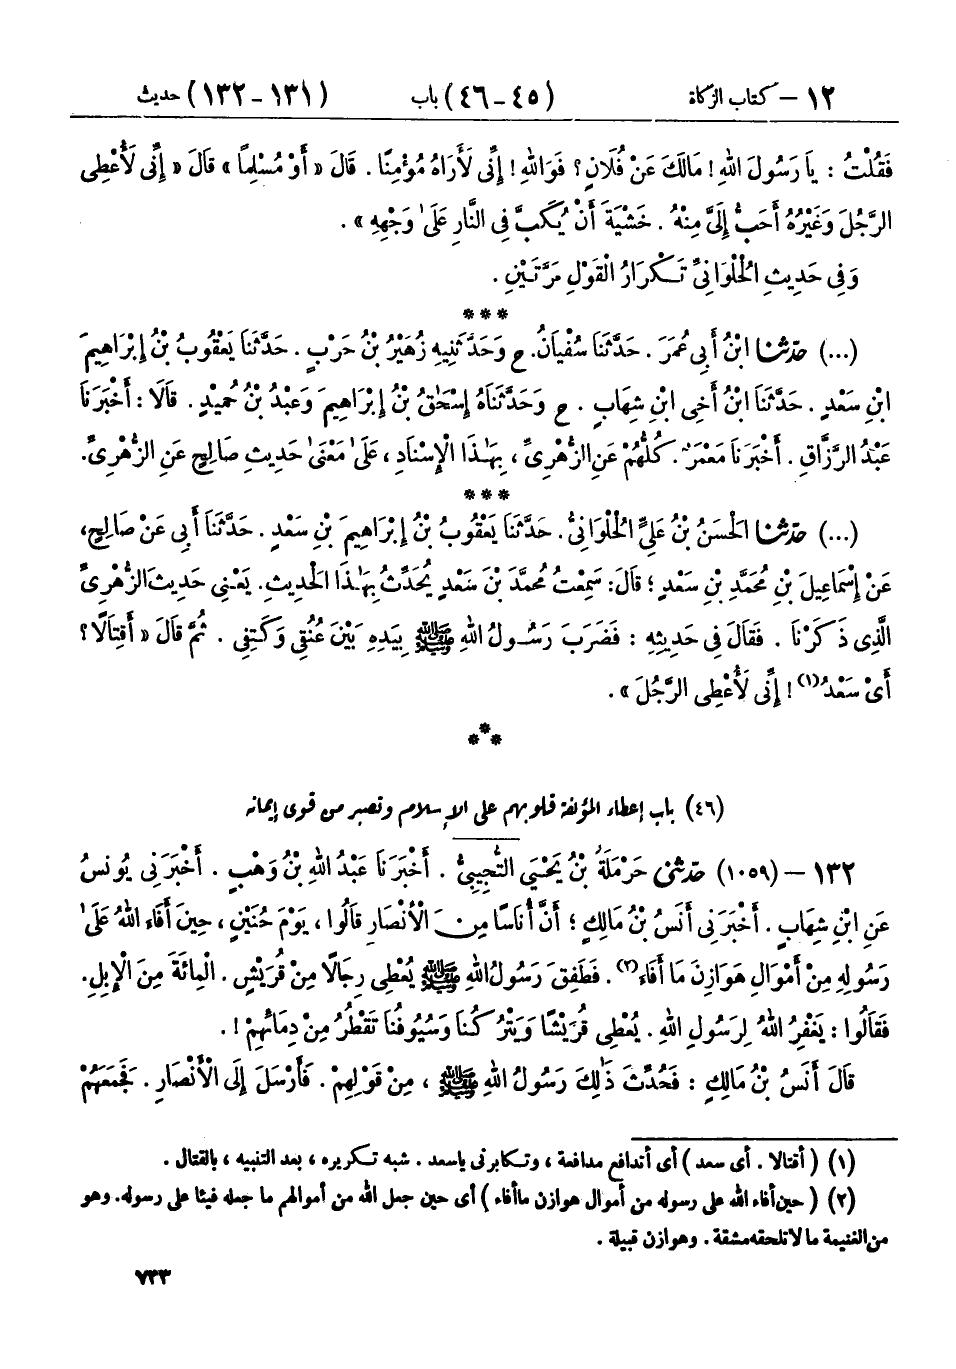 ١٢ – كتاب الزكاة (٤٥ – ٤٦) باب (١٣١ – ١٣٢) حديث
فَقُلْتُ : يَا رَسُولَ اللهِ ! مَالَكَ عَنْ فُلَانٍ ؟ فَوَاللهِ ! إِنِّى لَأَرَاهُ مُؤْمِنًا . قَالَ « أَوْ مُسْلِمًا » قَالَ « إِنِّى لَأُعْطِى
الرَّجُلَ وَغَيْرُهُ أَحَبُّ إِلَىَّ مِنْهُ . خَشْيَةَ أَنْ يُكَبَّ فِى النَّارِ عَلَىٰ وَجْهِهِ » .
وَفِى حَدِيثِ الْحُلْوَانِىِّ تَكْرَارُ الْقَوْلِ مَرَّتَيْنِ .
***
(...) حدّثنا ابْنُ أَبِى عُمَرَ . حَدَّثَنَا سُفْيَانُ . ح وَحَدَّثَنِيهِ زُهَيْرُ بْنُ حَرْبٍ . حَدَّثَنَا يَعْقُوبُ بْنُ إِبْرَاهِيمَ
ابْنِ سَعْدٍ . حَدَّثَنَا ابْنُ أَخِى ابْنِ شِهَابٍ . ح وَحَدَّثَنَاهُ إِسْحَٰقُ بْنُ إِبْرَاهِيمَ وَعَبْدُ بْنُ حُمَيْدٍ . قَالَا : أَخْبَرَنَا
عَبْدُ الرَّزَّاقِ . أَخْبَرَنَا مَعْمَرٌ . كُلُّهُمْ عَنِ الزُّهْرِىِّ ، بِهَٰذَا الْإِسْنَادِ ، عَلَىٰ مَعْنَىٰ حَدِيثِ صَالِحٍ عَنِ الزُّهْرِىِّ .
***
(...) حدّثنا الْحَسَنُ بْنُ عَلِىٍّ الْحُلْوَانِىُّ . حَدَّثَنَا يَعْقُوبُ بْنُ إِبْرَاهِيمَ بْنِ سَعْدٍ . حَدَّثَنَا أَبِى عَنْ صَالِحٍ ،
عَنْ إِسْمَاعِيلَ بْنِ مُحَمَّدِ بْنِ سَعْدٍ ؛ قَالَ : سَمِعْتُ مُحَمَّدَ بْنَ سَعْدٍ يُحَدِّثُ بِهَٰذَا الْحَدِيثِ . يَعْنِى حَدِيثَ الزُّهْرِىِّ
الَّذِى ذَكَرْنَا . فَقَالَ فِى حَدِيثِهِ : فَضَرَبَ رَسُولُ اللهِ ﷺ بِيَدِهِ بَيْنَ عُنُقِى وَكَتِفِى . ثُمَّ قَالَ « أَقِتَالًا ؟
أَىْ سَعْدُ(١) ! إِنِّى لَأُعْطِى الرَّجُلَ » .
***
(٤٦) باب إعطاء المؤلفة قلوبهم على الإسلام وتصبر من قوى إيمانه
١٣٢ – (١٠٥٩) حدّثنى حَرْمَلَةُ بْنُ يَحْيَى التُّجِيبِىُّ . أَخْبَرَنَا عَبْدُ اللهِ بْنُ وَهْبٍ . أَخْبَرَنِى يُونُسُ
عَنِ ابْنِ شِهَابٍ . أَخْبَرَنِى أَنَسُ بْنُ مَالِكٍ ؛ أَنَّ أُنَاسًا مِنَ الْأَنْصَارِ قَالُوا ، يَوْمَ حُنَيْنٍ ، حِينَ أَفَاءَ اللهُ عَلَىٰ
رَسُولِهِ مِنْ أَمْوَالِ هَوَازِنَ مَا أَفَاءَ(٢) . فَطَفِقَ رَسُولُ اللهِ ﷺ يُعْطِى رِجَالًا مِنْ قُرَيْشٍ . الْمِائَةَ مِنَ الْإِبِلِ .
فَقَالُوا : يَغْفِرُ اللهُ لِرَسُولِ اللهِ . يُعْطِى قُرَيْشًا وَيَتْرُكُنَا وَسُيُوفُنَا تَقْطُرُ مِنْ دِمَائِهِمْ ! .
قَالَ أَنَسُ بْنُ مَالِكٍ : فَحُدِّثَ ذَٰلِكَ رَسُولُ اللهِ ﷺ ، مِنْ قَوْلِهِمْ . فَأَرْسَلَ إِلَى الْأَنْصَارِ . فَجَمَعَهُمْ
(١) ( أقتالا . أى سعد ) أى أتدافع مدافعة ، وتكابرنى ياسعد . شبه تكريره ، بعد التنبيه ، بالقتال .
(٢) ( حين أفاء الله على رسوله من أموال هوازن ما أفاء ) أى حين جعل الله من أموالهم ما جعله فيئا على رسوله . وهو
من الغنيمة ما لا تلحقه مشقة . وهوازن قبيلة .
٧٣٣